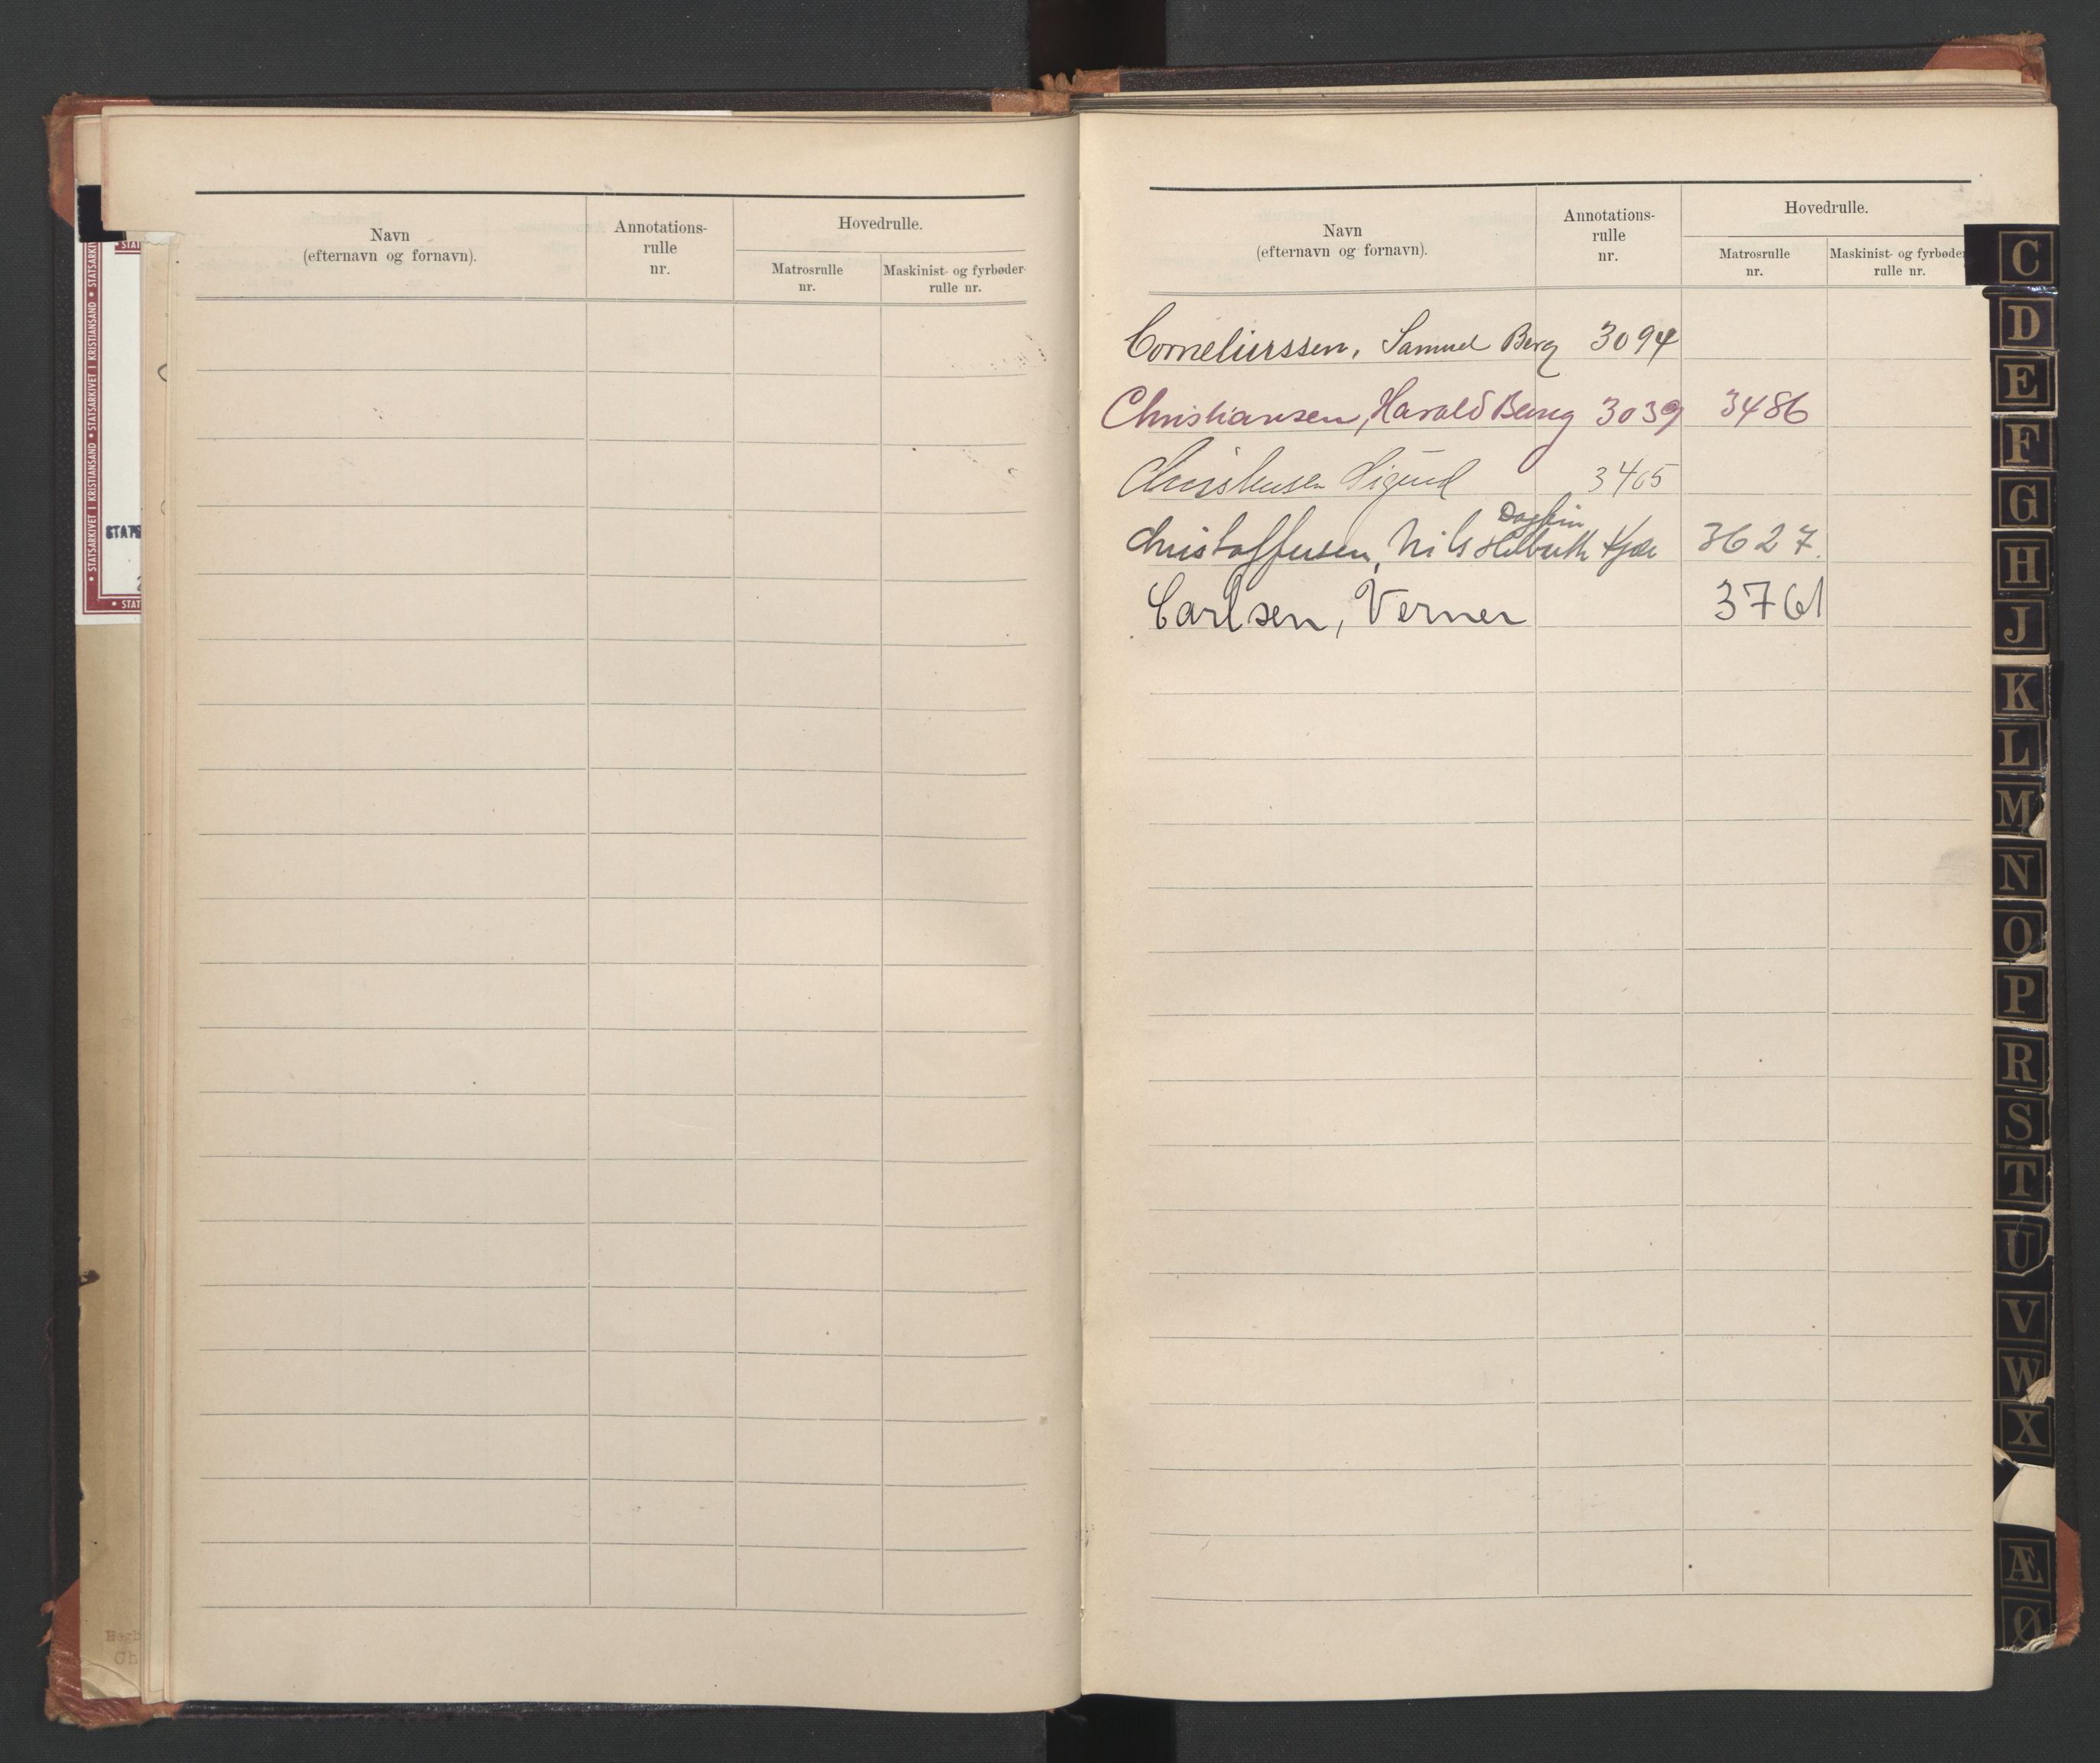 Navn
(efternavn og fornavn).
Annotations-
rulle
nr.
Hovedrulle.
Matrosrulle
nr.
Maskinist- og fyrbøder-
rulle nr.
• STATSARKIVET I KRISTIANSAND • STATSARKIVET I KRISTIANSAND • STATSARKIV
STAT
STATS
• STAT
Navn
(efternavn og fornavn).
Annotations-
rulle
nr.
Hovedrulle.
Matrosrulle
nr.
Maskinist- og fyrbøder
rulle nr.
Corneliussen, Samuel Berg 3094
Christiansen, Harald Berng 3039 3486
Christensen Sigurd 3465
Dagfin
Christoffersen, Nils 3627.
Carlsen, Verner 3761
C
D
E
F
G
H
J
K
L
M
N
O
P
R
S
T
U
V
W
X
Æ
Ø